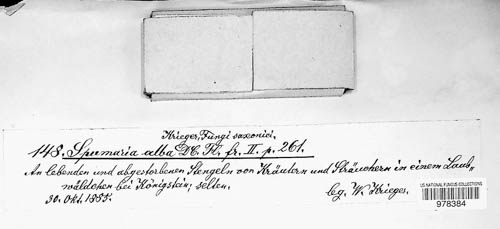 Krieger, Fungi saxonici.
148. Spumaria alba DC. Fl. fr. II. p. 261.
An lebenden und abgestorbenen Stengeln von Kräutern und Sträuchern in einem Laub„
wäldchen bei Königstein; selten.
30. Okt. 1885. leg. W. Krieger.
US NATIONAL FUNGUS COLLECTIONS
978384